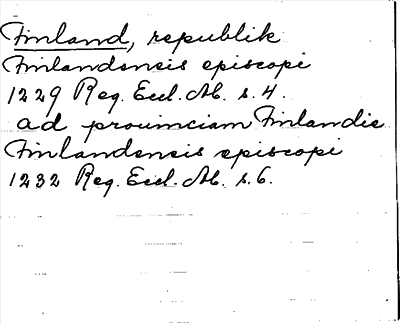 Finland, republik
Finlandensis episcopi
1229 Reg. Eccl. Ab. s. 4.
ad prouinciam Finlandie
Finlandensis episcopi
1232 Reg. Eccl. Ab. s. 6.